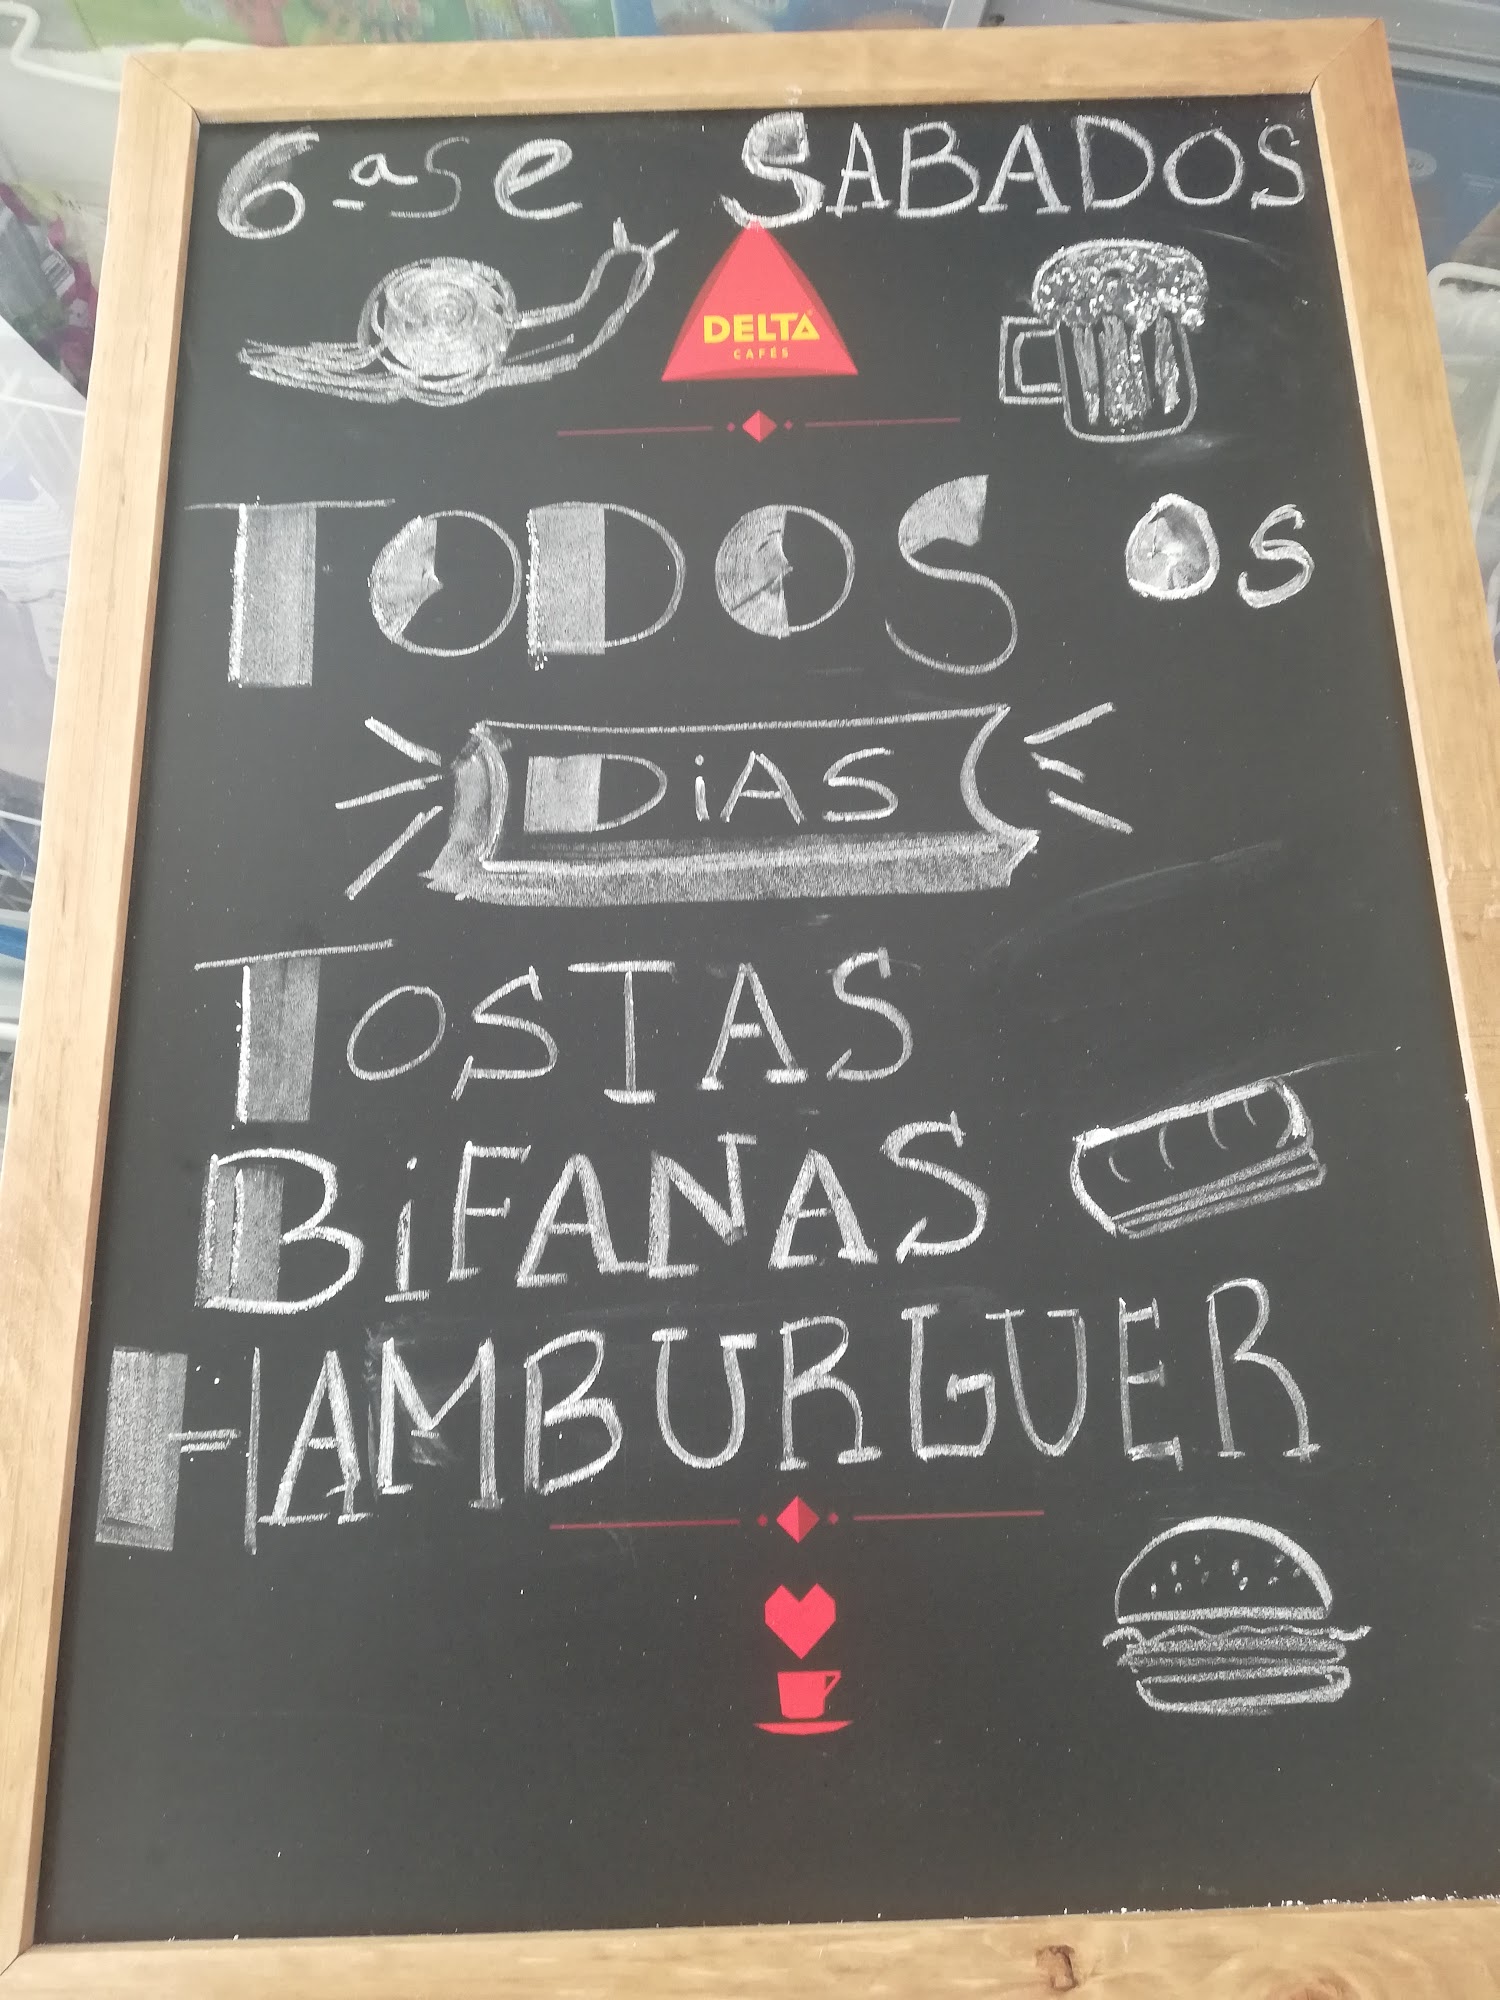 6ªs e SABADOS
DELTA
CAFÉS
TODOS OS
DiAS
TOSTAS
BiFANAS
HAMBURGUER